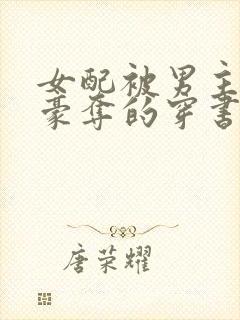 女配被男主
豪夺的穿书
唐荣耀